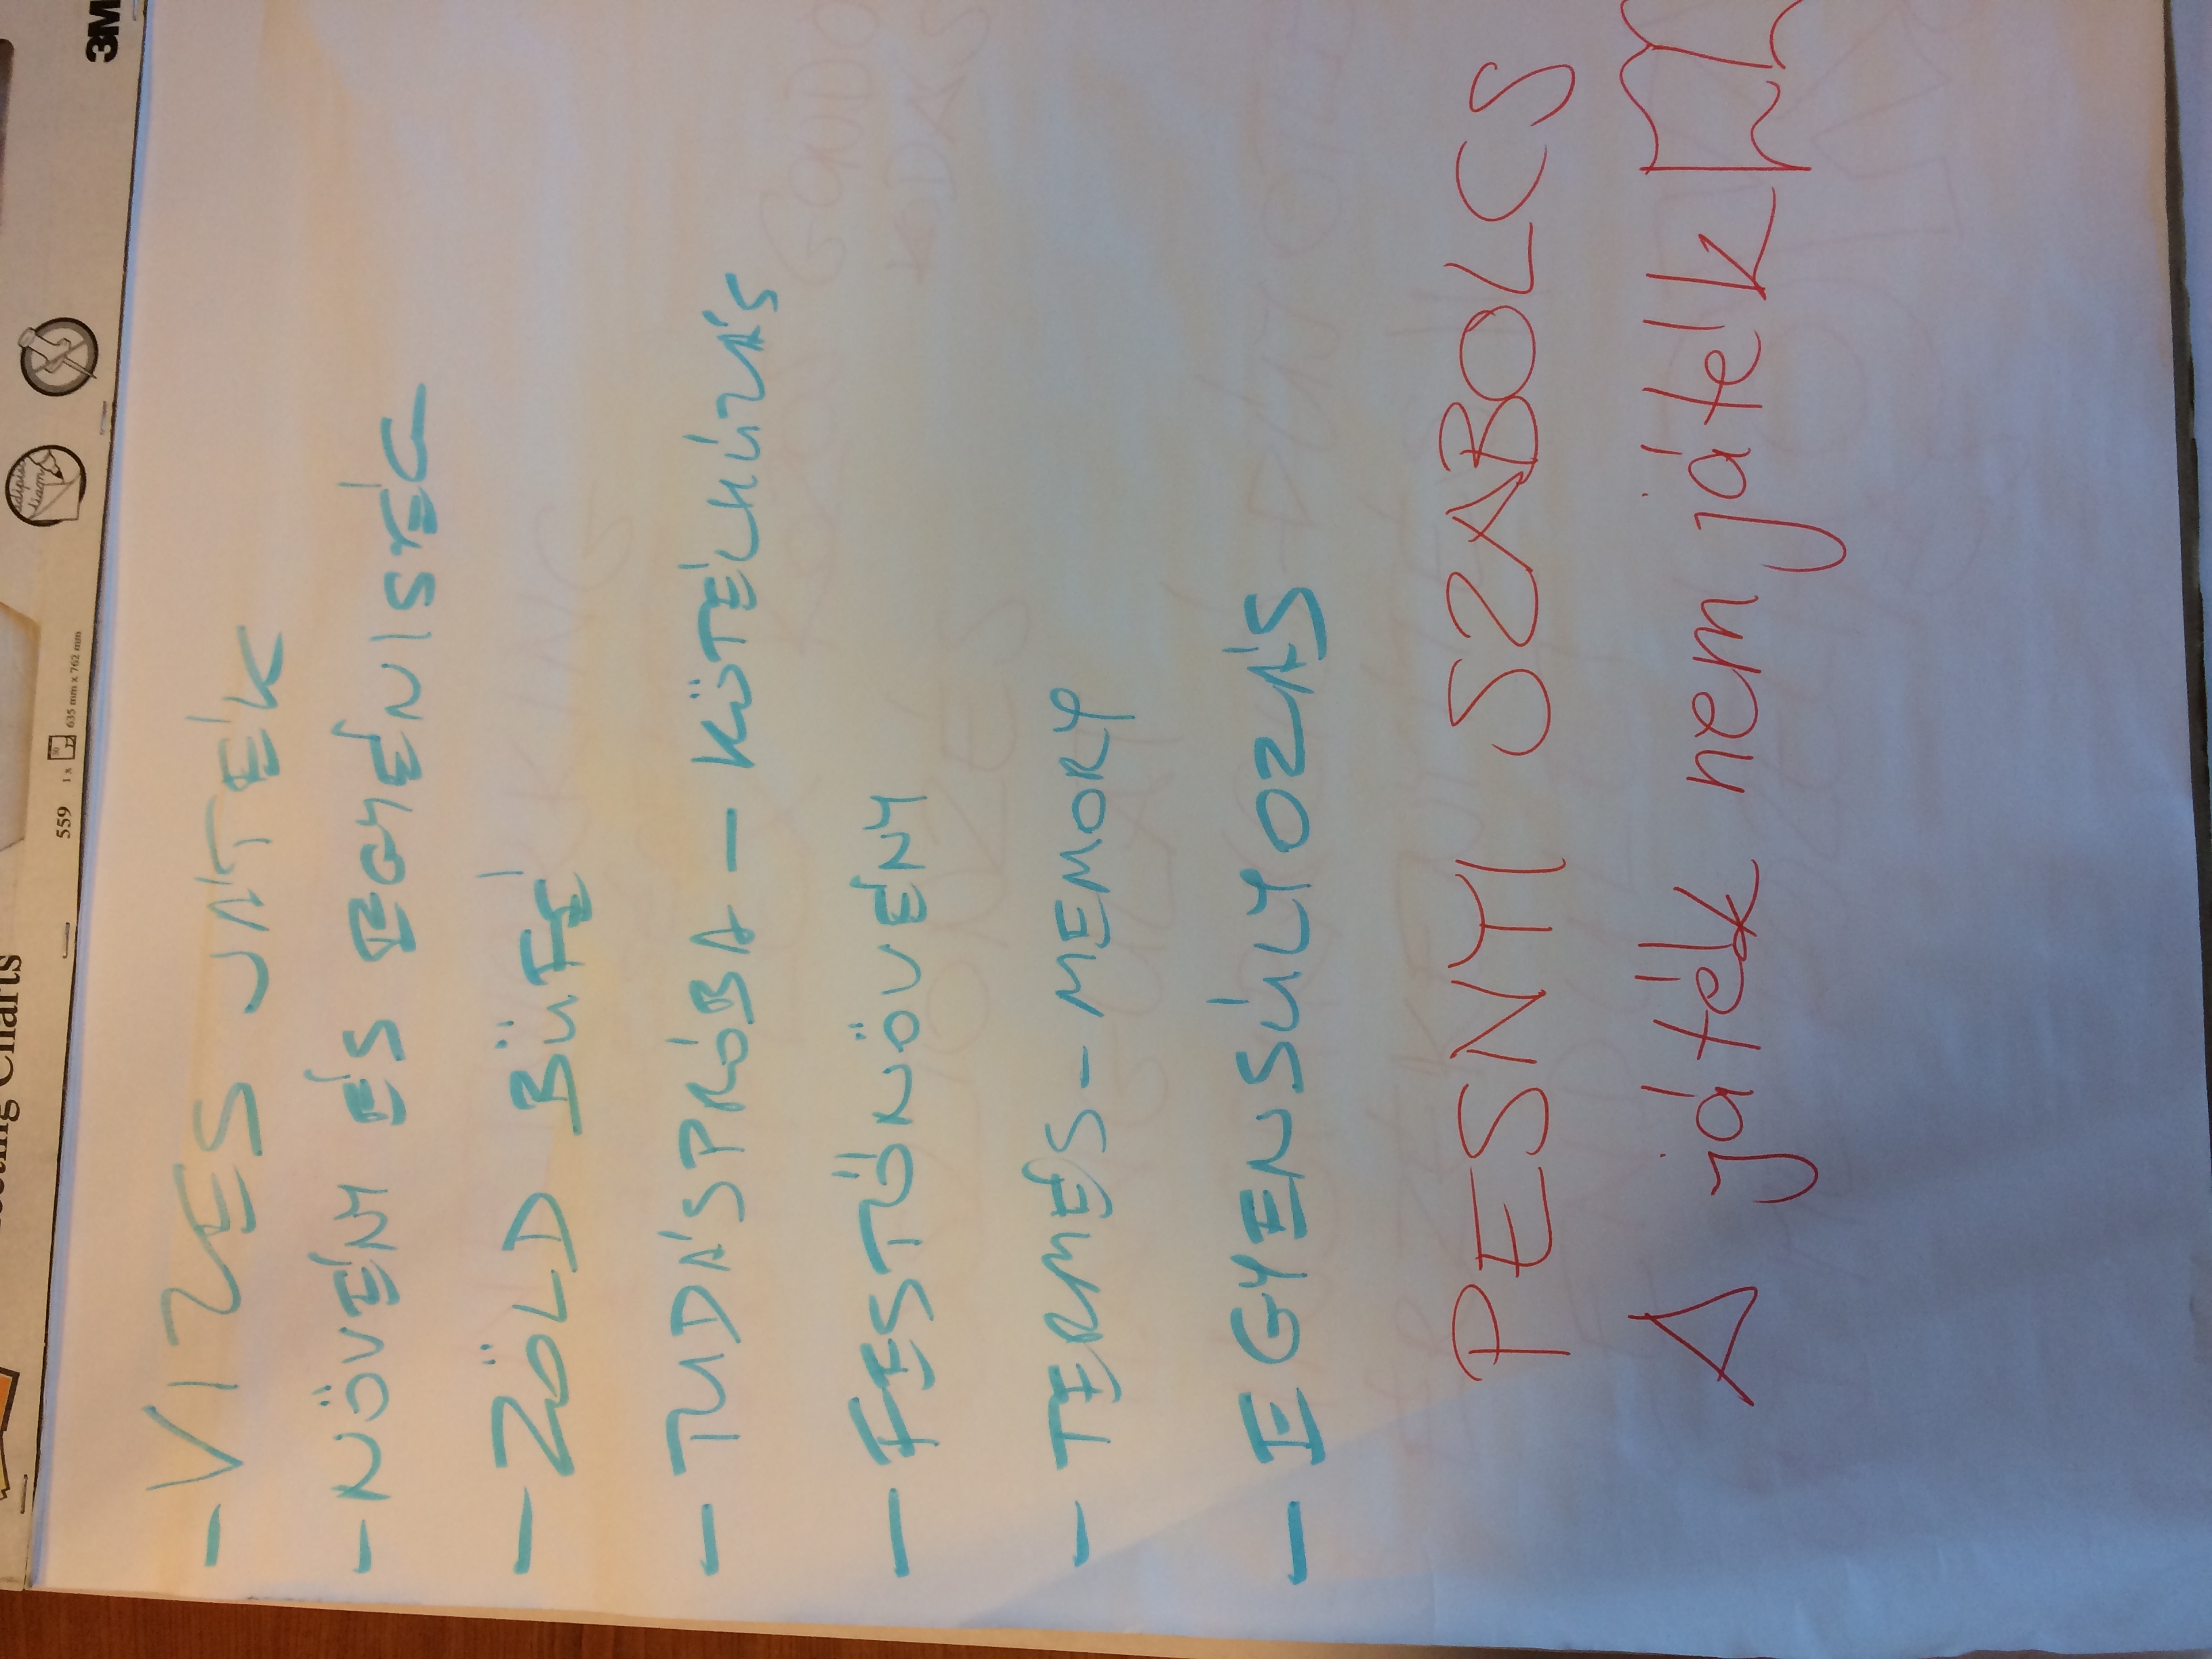 3M
559 1 x 635 mm x 762 mm
- VIZES JÁTÉK
- NÖVÉNY ÉS EGYÉNISÉG
- ZÖLD BÜFÉ
- TUDÁSPRÓBA - KÖTÉLHÚZÁS
- FESTŐNÖVÉNY
- TERMÉS - MEMORY
- EGYENSÚLYOZÁS
PESNYI SZABOLCS
A játék nem játék